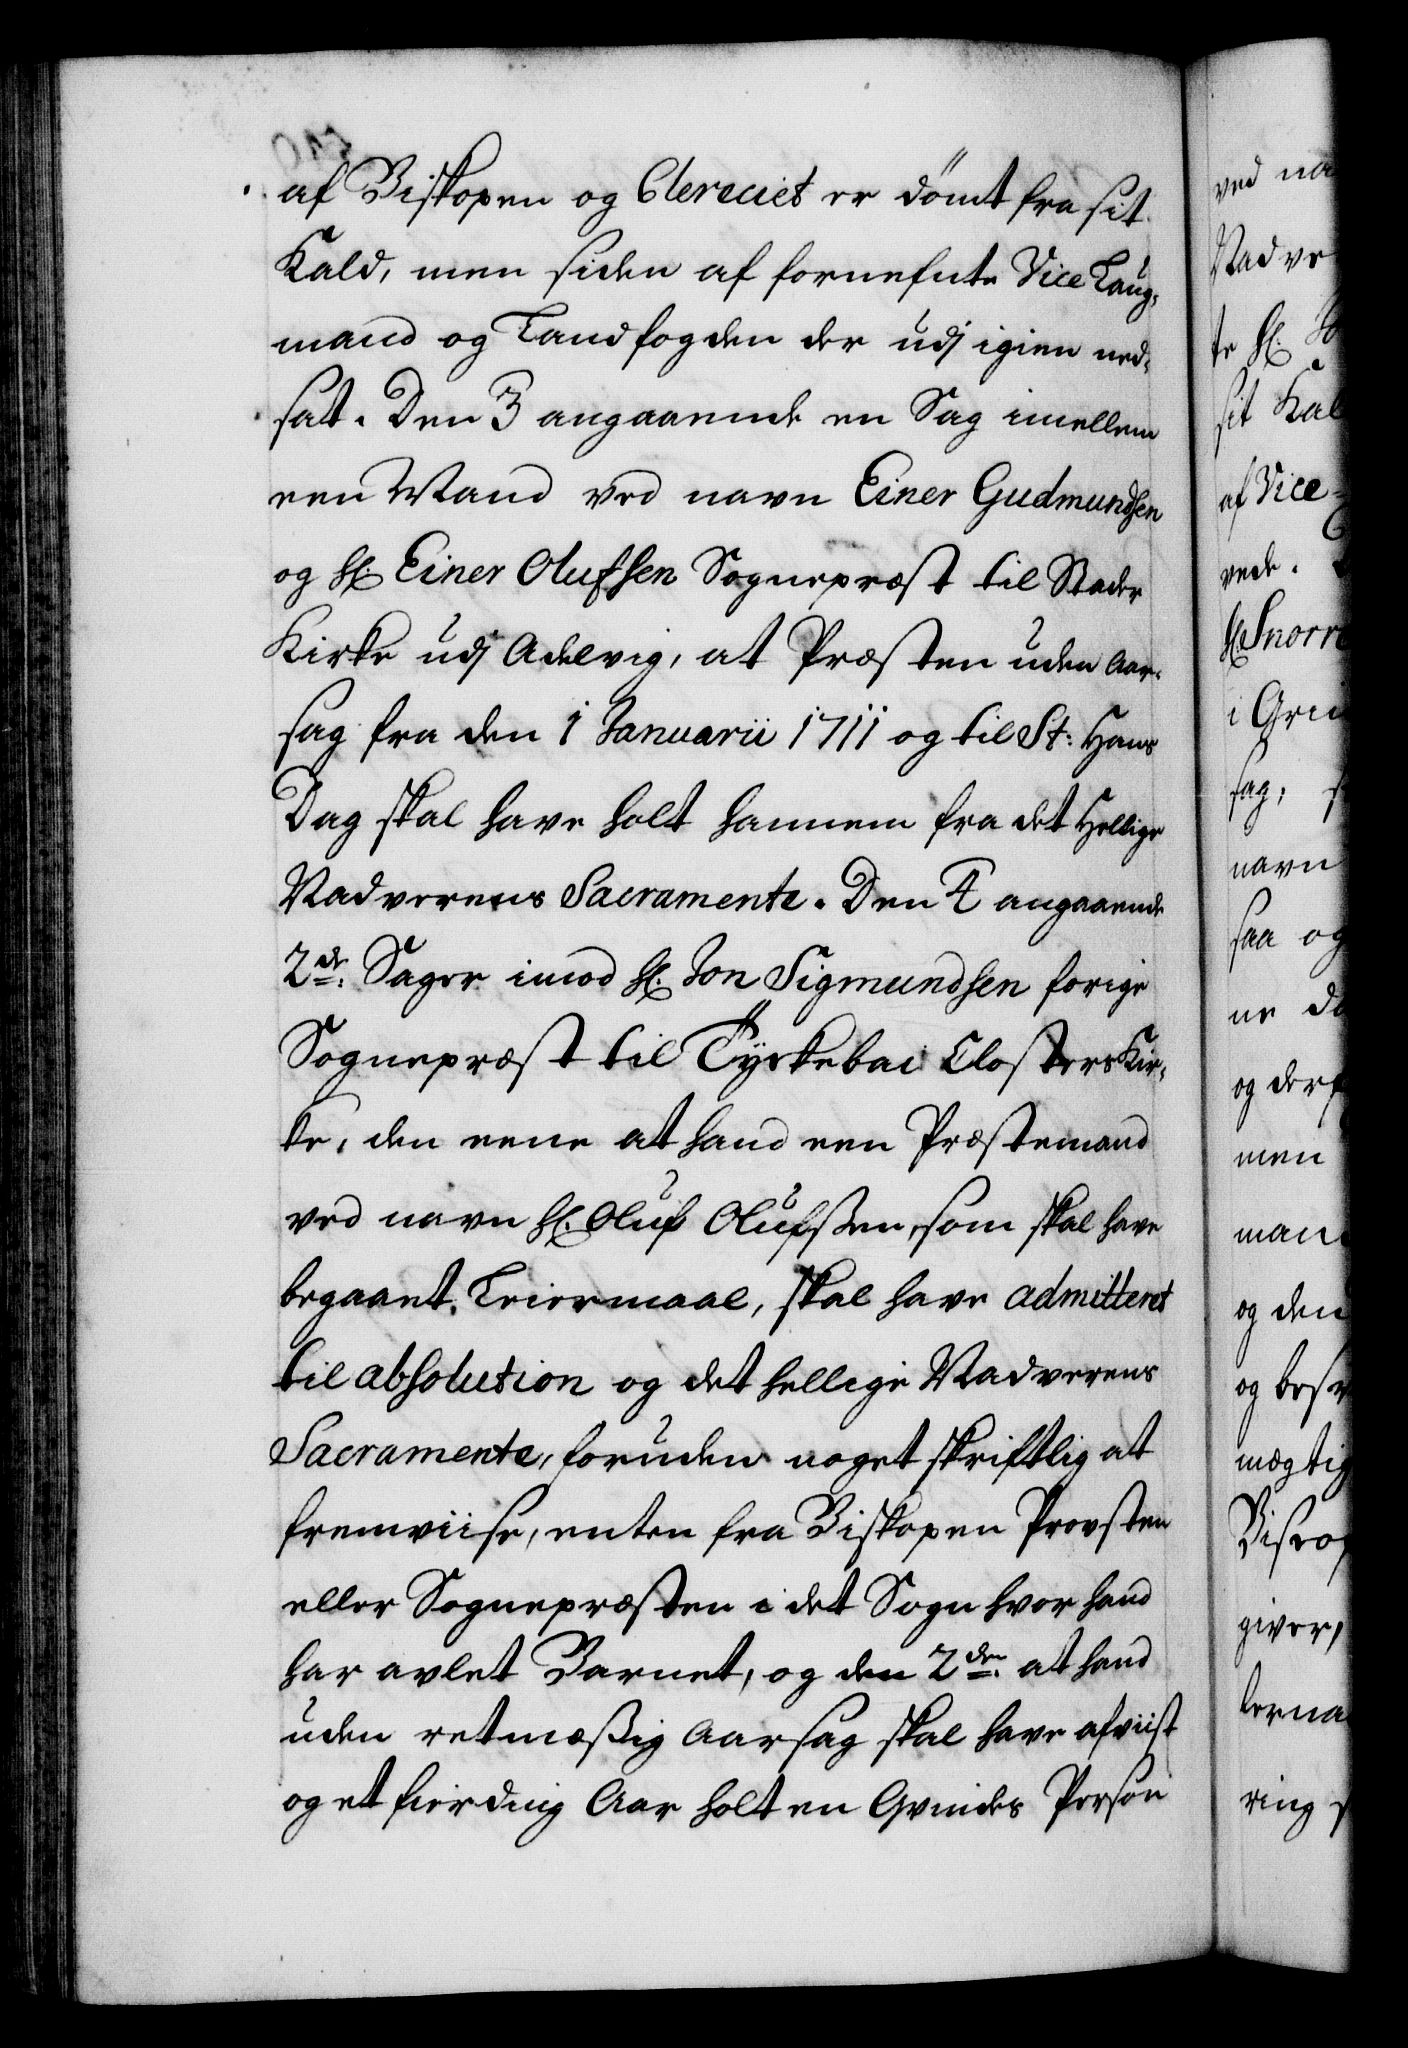 af Biskopen og Clereciet er dömt fra sit
Kald, men siden af fornefnte Vice Laug-
mand og Landfogden der udj igien ned-
sat. Den 3 angaaende en Sag imellem
een Mand ved navn Einer Gudmundsen
og Hr. Einer Olufsen Sognepræst til Stader
Kirke udj Adelvig, at Præsten uden Aar-
sag fra den 1 Januarii 1711 og til St: Hans
Dag skal have holt hannem fra det Hellige
Nadverens Sacramente. Den 4 angaaende
2de. Sager imod Hr. Jon Sigmundsen forige
Sognepræst til Tyckebai Closters Kir-
ke, den eene at hand een Præstemand
ved navn Hr. Oluf Olufssen, som skal have
begaaet Leiermaal, skal have admitteret
til absolution og det hellige Nadverens
Sacramente, foruden noget skriftlig at
fremviise, enten fra Biskopen Provsten
eller Sognepræsten i det Sogn hvor hand
har avlet Barnet, og den 2den. at hand
uden retmæssig Aarsag skal have afviist
og et fierding Aar holt en Qvindes Person
ved na
Nadve
te Hr.
sit Kal
af Vice-
vede.
Hr. Snorre
i Gri
sag,
navn
saa og
ne
og derf
men
man
og den
og besv
mægtig
Biskop
giver,
terna
ring